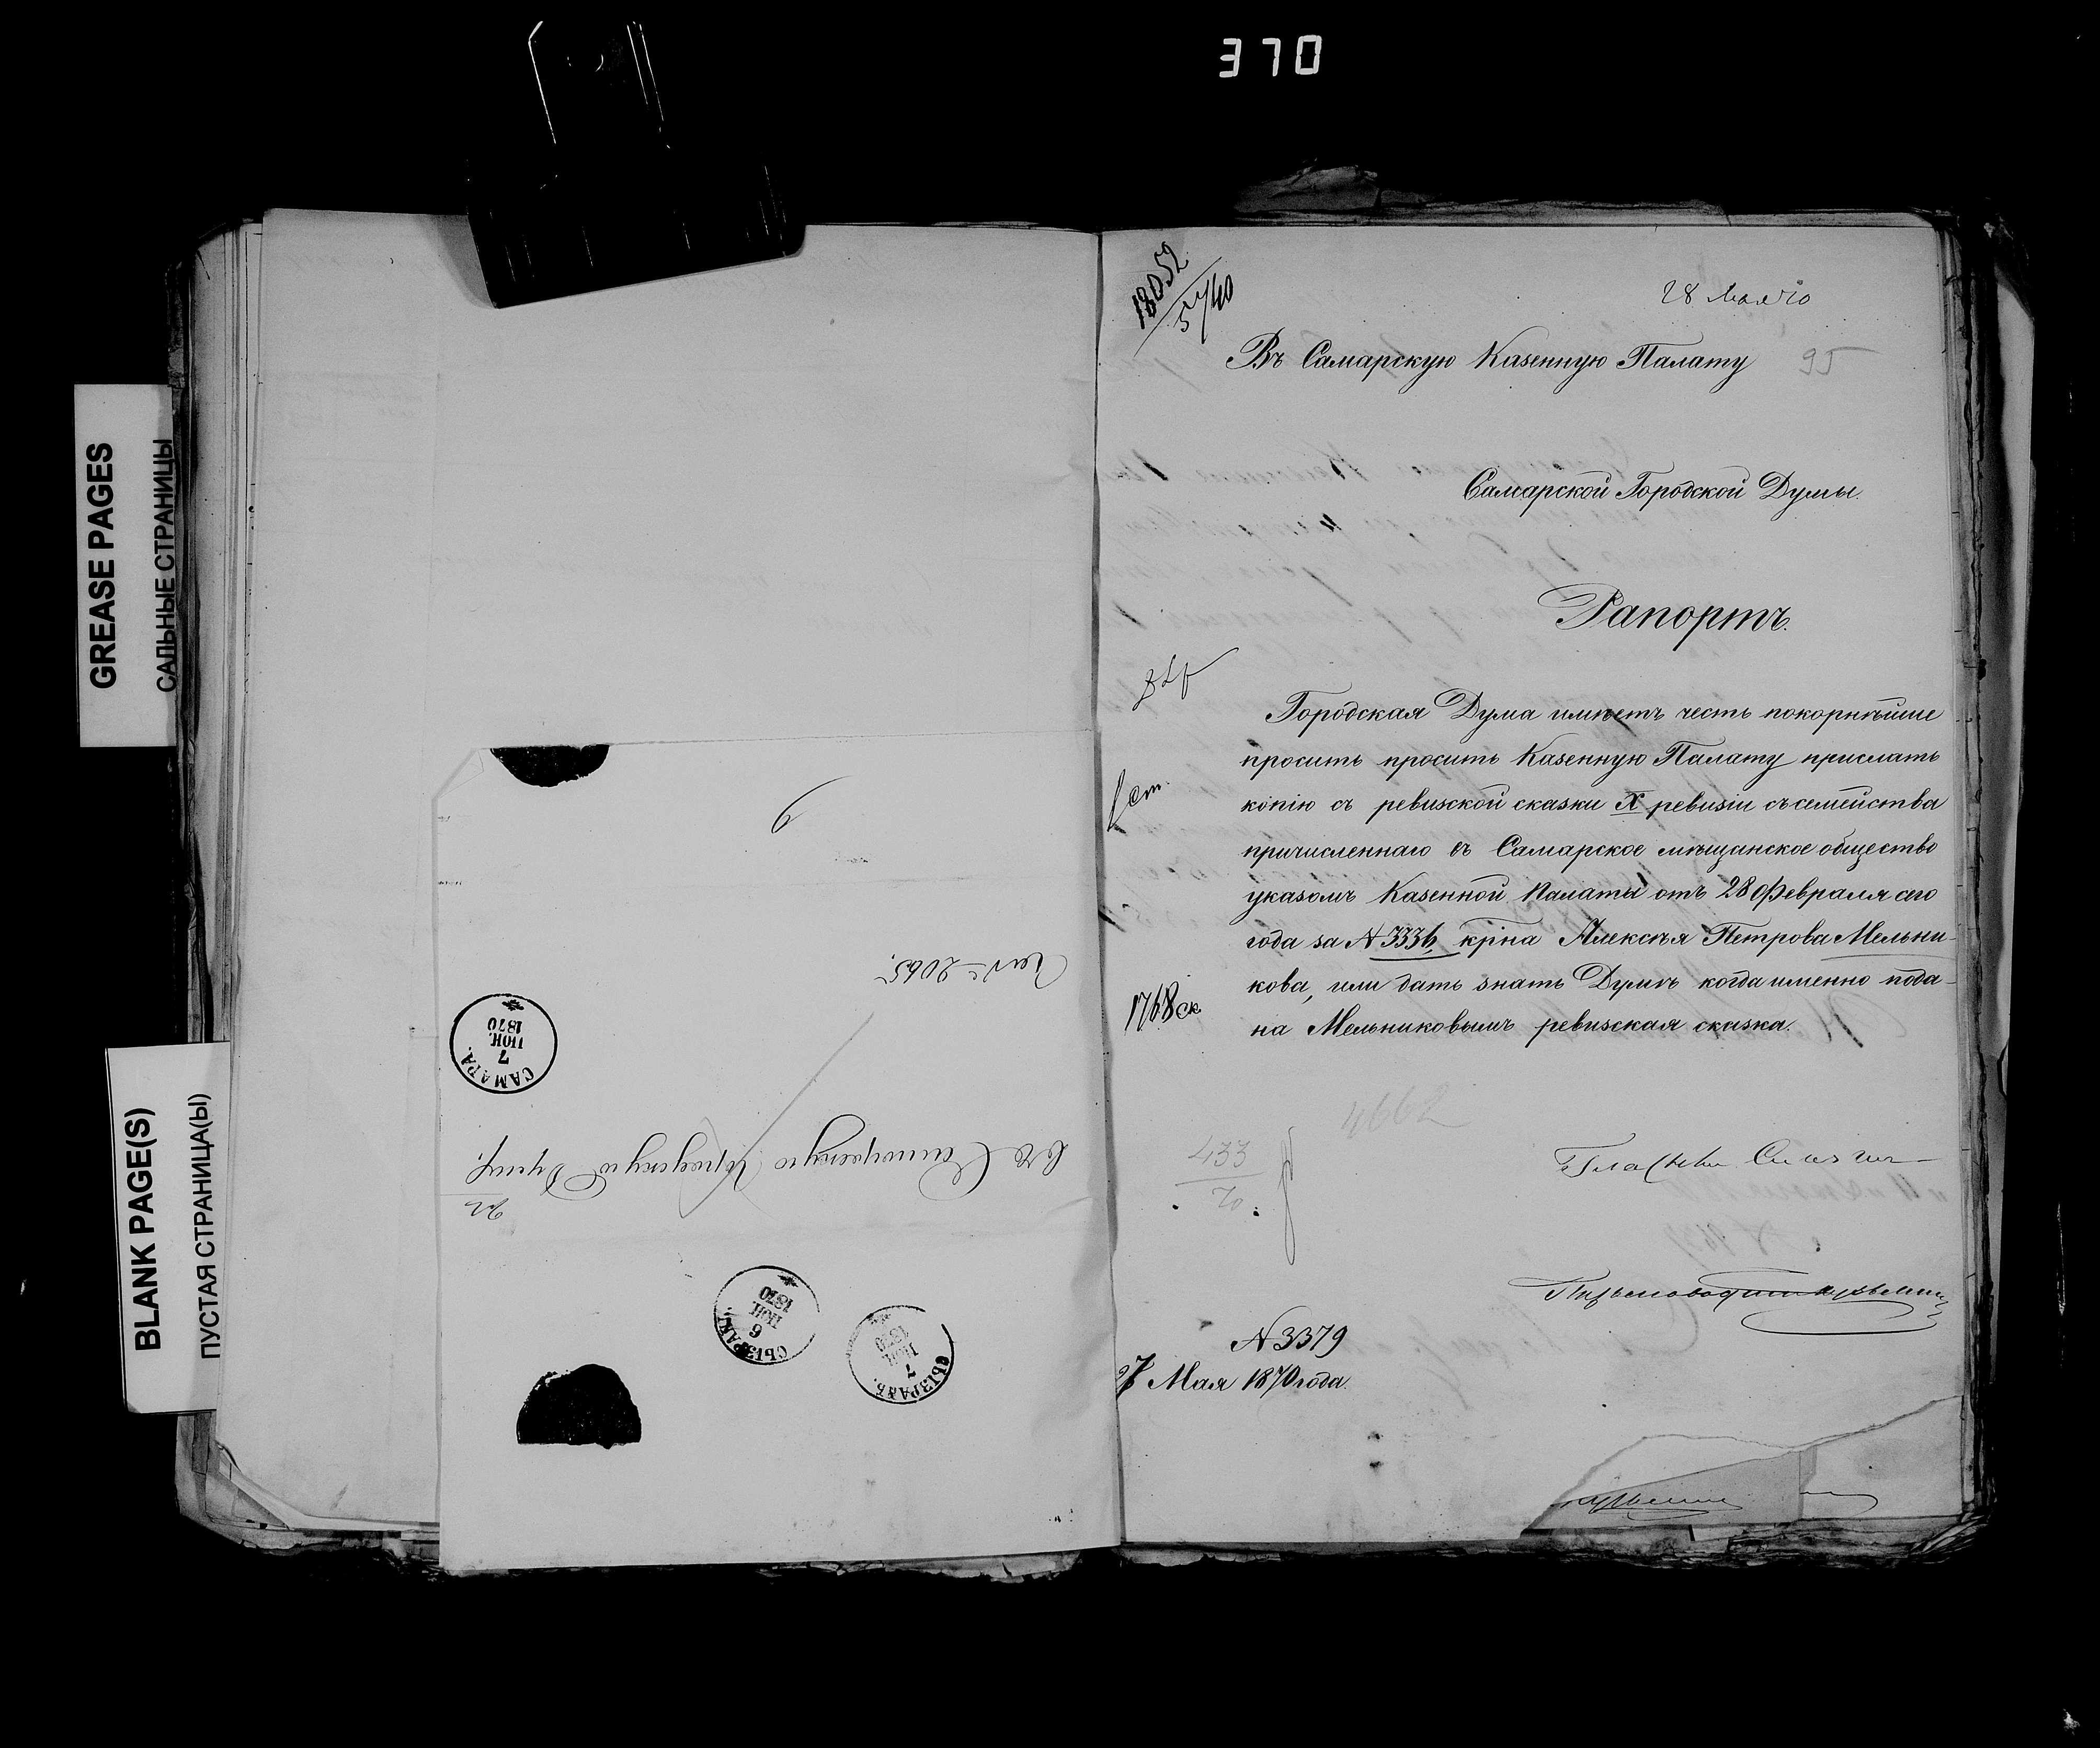 370
GREASE PAGES
САЛЬНЫЕ СТРАНИЦЫ
BLANK PAGE(S)
ПУСТАЯ СТРАНИЦА(Ы)
№ 2065.
САМАРА.
7
ІЮН.
1870
Въ Самарскую Городскую Думу.
СЫЗРАНЬ.
6
ІЮН.
1870
СЫЗРАНЬ.
7
18052
5740
28 Мая 70
Въ Самарскую Казенную Палату
95
Самарской Городской Думы.
Рапортъ.
Городская Дума имѣетъ честь покорнѣйше
просить просить Казенную Палату прислать
копію съ ревизской сказки X ревизіи съ семейства
причисленнаго въ Самарское мѣщанское общество
указомъ Казенной Палаты отъ 28 Февраля сего
года за № 3336, кр-на Алексѣя Петрова Мельни-
кова, или дать знать Думѣ когда именно пода-
на Мельниковымъ ревизская сказка.
1 ст.
1768 ск
4662
433
70
№ 3379
27 Мая 1870 года.